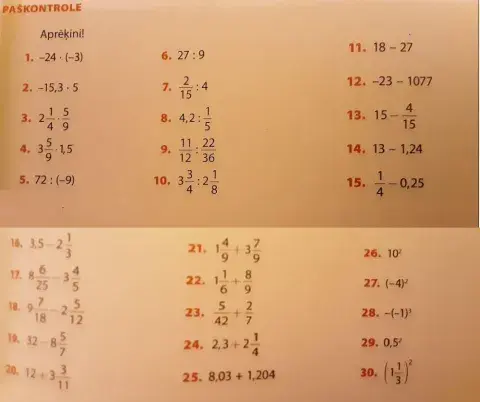 PAŠKONTROLE
Aprēķini!
1. –24 · (–3)
2. –15,3 · 5
3. 2 1/4 · 5/9
4. 3 5/9 · 1,5
5. 72 : (–9)
6. 27 : 9
7. 2/15 : 4
8. 4,2 : 1/5
9. 11/12 : 22/36
10. 3 3/4 : 2 1/8
11. 18 – 27
12. –23 – 1077
13. 15 – 4/15
14. 13 – 1,24
15. 1/4 – 0,25
16. 3,5 – 2 1/3
17. 8 6/25 – 3 4/5
18. 9 7/18 – 2 5/12
19. 32 – 8 5/7
20. 12 + 3 3/11
21. 1 4/9 + 3 7/9
22. 1 1/6 + 8/9
23. 5/42 + 2/7
24. 2,3 + 2 1/4
25. 8,03 + 1,204
26. 10²
27. (–4)²
28. –(–1)³
29. 0,5²
30. (1 1/3)²